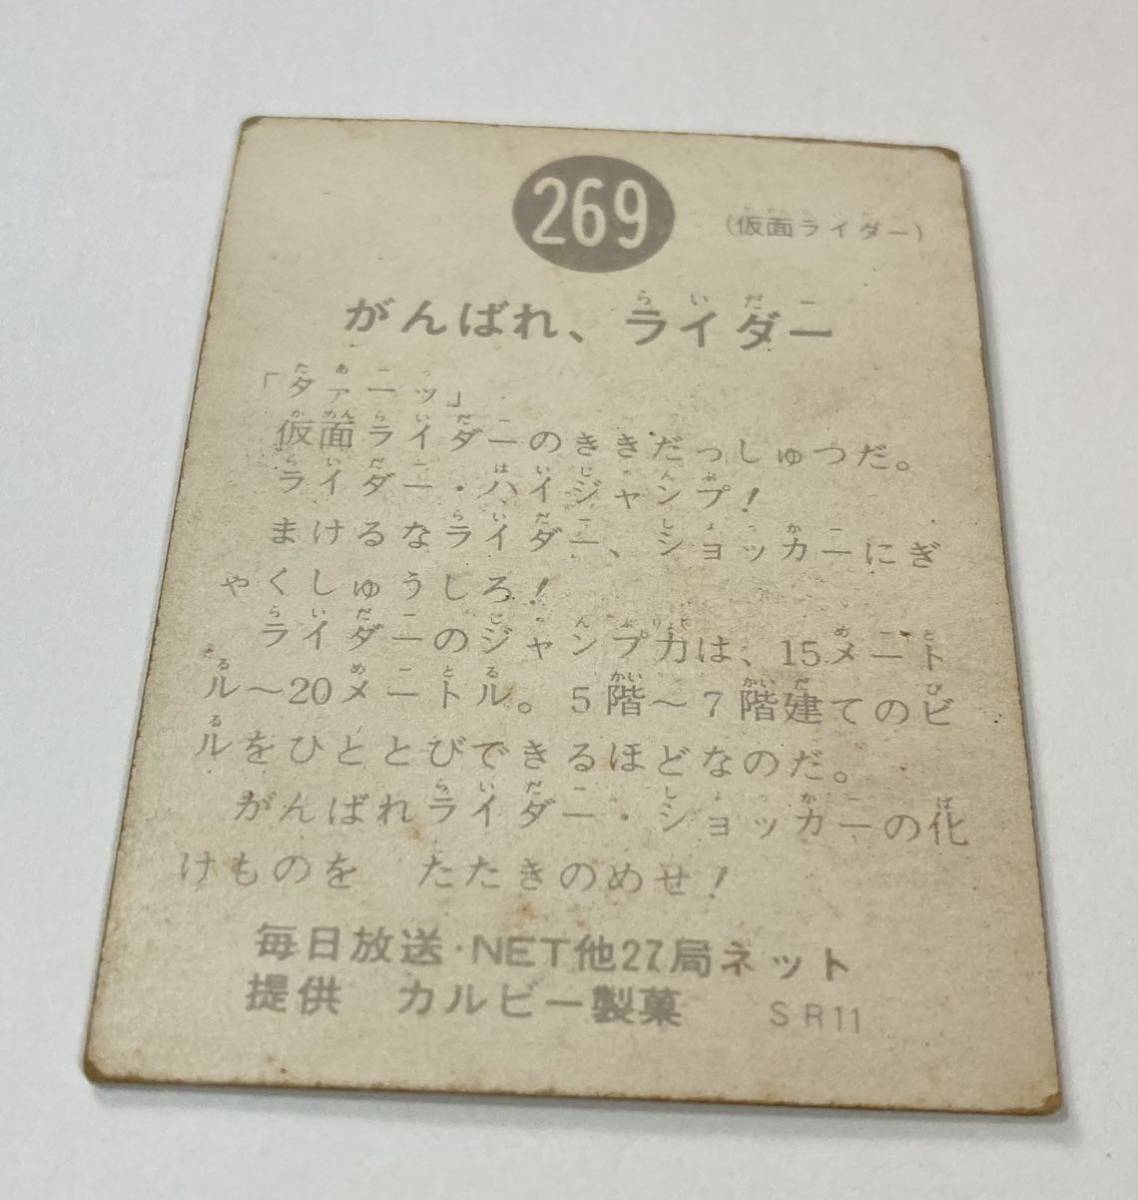 269
(仮面ライダー)
がんばれ、ライダー
「タァーッ」
仮面ライダーのききだっしゅつだ。
ライダー・ハイジャンプ!
まけるなライダー、ショッカーにぎ
ゃくしゅうしろ!
ライダーのジャンプ力は、15メート
ル~20メートル。5階~7階建てのビ
ルをひととびできるほどなのだ。
がんばれライダー・ショッカーの化
けものを たたきのめせ!
毎日放送・NET他27局ネット
提供 カルビー製菓 SR11